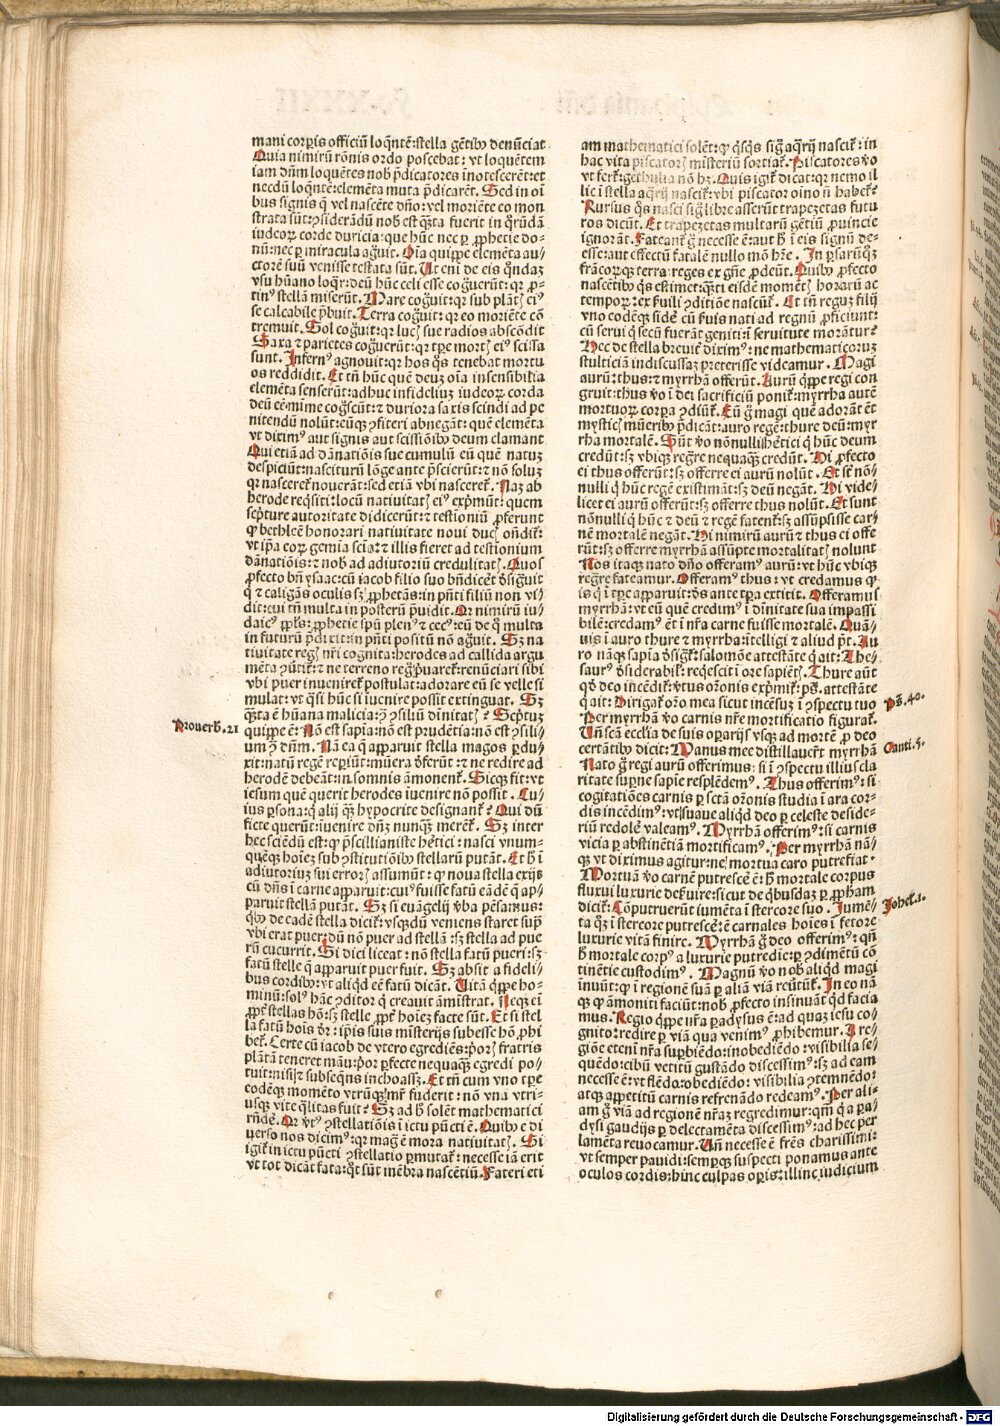 mani corꝑis officiū loq̄nte᷒: stella gētib᷒ denūciat
Quia nimirū rōnis ordo poscebat: vt loquētem
iam dn̄m loquētes nob̄ p̄dicatores inotescerēt: et
necdū loq̄ntē: elemēta muta p̄dicarēt. Sed in oī
bus signis q̄ vel nascēte dn̄o: vel moriēte co mon
strata sūt: ꝯsiderādū nob̄ est q̄ta fuerit in q̄rūdā
iudeoꝝ corde duricia: que hūc nec ꝑ ꝓphetie do-
nū: nec ꝑ miracula agūit. Oīa quippe elemēta au/
ctorē suū venisse testata sūt. Ut eni de eis q̄ndaꝫ
vsu hūano loq̄r: deū hūc celi esse cogūerūt: qꝛ ꝓ-
tin᷒ stellā miserūt. Mare cogūit: qꝛ sub plāt ei᷒
se calcabile p̄buit. Terra cogūit: qꝛ eo moriēte cō
tremuit. Sol cogūit: qꝛ luc sue radios abscōdit
Saxa ⁊ parietes cogūerūt: qꝛ tꝑe mort ei᷒ scissa
sunt. Infern᷒ agnouit: qꝛ hos q̄s tenebat mortu
os reddidit. Et tn̄ hūc quē deuꝫ oīa insensibilia
elemēta senserūt: adhuc infideliuꝫ iudeoꝝ corda
deū eē mīme cogscūt: ⁊ duriora saxis scindi ad pe
nitendū nolūt: eūqꝫ ꝯfiteri abnegāt: quē elemēta
vt dixim᷒ aut signis aut scissiōib᷒ deum clamant
Qui etiā ad dānatiōis sue cumulū eū quē natuꝫ
despiciūt: nasciturū lōge ante p̄scierūt: ⁊ nō soluꝫ
qꝛ nasceret nouerāt: sed etiā vbi nasceret. Naꝫ ab
herode reqsiti: locū natiuitat ei᷒ exp̄mūt: quem
scpture autoritate didicerūt: ⁊ testioniū ꝓferunt
ꝙ bethleē honorari natiuitate noui duc on̄dit:
vt ip̄a eoꝝ gemia scīa: ⁊ illis fieret ad testionium
dānatiōis: ⁊ nob̄ ad adiutoriū credulitat. Quos
ꝓfecto bn̄ ysaac: cū iacob filio suo bn̄diceret dsiguit
q ⁊ caligās oculis sꝫ ꝓphetās: in pn̄ti filiū non vi/
dit: cui tn̄ multa in posterū p̄uidit. Qꝛ nimirū iu/
daic᷒ ppl᷒s: ꝓphetie spū plen᷒ ⁊ cec᷒: eū de q̄ multa
in futurū p̄dixit: in pn̄ti positū nō agūit. Sꝫ na
tiuitate reg nr̄i cognita: herodes ad callida argu
mēta ꝯu̇tit: ⁊ ne terreno reg̃ p̄uaret: renūciari sibi
vbi puer inueniret postulat: adorare eū se velle si
mulat: vt q̄si hūc si iuenire possit extinguat. Sꝫ
q̄ta ē hūana malicia: ꝯ ꝯsiliū diuinitat? Sc̄ptuꝫ
quippe ē: Nō est sapīa: nō est prudētia: nō est ꝯsili/
um ꝯ dn̄m. Nā ea q̄ apparuit stella magos ꝑdu/
xit: natū regē reꝑiūt: mūera offerūt: ⁊ ne redire ad
herodē debeāt: in somnis āmonent. Sicqꝫ fit: vt
iesum quē querit herodes iuenire nō possit. Cu/
ius ꝑsona: q̄ alij q̄ꝫ hypocrite designant? Qui dū
ficte querūt: iuenire dn̄ꝫ nunqꝫ merent. Sꝫ inter
hec sciēdū est: ꝙ p̄scillianiste hētici: nasci vnum-
quēqꝫ hoieꝫ sub ꝯstitutiōib᷒ stellarū putāt. Et h̄ ī
adiutoriuꝫ sui error assumūt: ꝙ noua stella exijt
cū dn̄s i carne apꝑaruit: cui᷒ fuisse fatū eādē q̄ ap/
paruit stellā putāt. Sꝫ si euāgelij v̇ba pēsamus:
qb᷒ de cadē stella dicit: vsqꝫdū veniens staret sup̄
vbi erat puer: dū nō puer ad stellā: sꝫ stella ad pue
rū cucurrit. Si dici liceat: nō stella fatū pueri: sꝫ
fatū stelle q̄ apparuit puer fuit. Sꝫ absit a fideli/
bus cordib᷒: vt aliqd eē fatū dicāt. Uitā q̄ppe ho-
minū: sol᷒ hāc ꝯditor q̄ creauit āmīstrat. Neqꝫ eī
ꝓpt̄ stellas hō: sꝫ stelle ꝓpt̄ hoieꝫ facte sūt. Et si stel
la fatū hois dr̄: ip̄is suis misterijs subesse hō ꝓhi
bet. Certe cū iacob de vtero egrediēs: p̄or fratris
plātā teneret māu: p̄or ꝑfecte nequaqꝫ egredi po/
tuit: nisi ⁊ subseq̄ns inchoasꝫ. Et tn̄ cum vno tꝑe
codēqꝫ momēto vtrūqꝫ mr̄ fuderit: nō vna vtri/
usqꝫ vite q̄litas fuit? Sꝫ ad h̄ solēt mathematici
rn̄dē. Qꝛ v̇t᷒ ꝯstellatiōis i ictu pūcti ē. Quib᷒ e di
uerso nos dicim᷒: qꝛ mag ē mora natiuitat. Si
igit in ictu pūcti ꝯstellatio ꝑmutat: necesse iā erit
vt tot dicāt fata: q̄t sūt mēbra nascētiū. Fateri eti
Prouerb. 21
am mathematici solēt: ꝙ q̄sq̄s sig̃ aq̄rij nascit: in
hac vita piscator misteriū sortiat. Piscatores v̇o
vt fert: gethulia nō hꝫ. Quis igit dicat: qꝛ nemo il
lic i stella aq̄rij nascit: vbi piscator oīno n̄ habet?
Rursus q̄s nasci sig̃ libre asserūt trapezetas futu
ros dicūt. Et trapezetas multarū gētiū ꝓuincie
ignorāt. Fateant g̃ necesse ē: aut h̄ i eis signū de-
esse: aut effectū fatalē nullo mō hr̄e. In ꝑsarūqꝫ
frācorꝫqꝫ terra: reges ex gn̄e ꝓdeūt. Quib᷒ ꝓfecto
nascētib᷒ q̄s estimet: q̄ti eisdē momēt horarū ac
tempoꝝ: ex ẜuili ꝯditiōe nascūt. Et tn̄ reguꝫ filij
vno codēqꝫ sidē cū ẜuis nati ad regnū ꝓficiunt:
cū serui q̄ secū fuerāt geniti: i seruitute morātur?
Hec de stella breuitē dixim᷒: ne mathematicoruꝫ
stulticiam indiscussaꝫ preterisse videamur. Magi
aurū: thus: ⁊ myrrhā offerūt. Aurū q̄ppe regi con
gruit: thus v̇o i dei sacrificiū ponit: myrrha autē
mortuoꝝ corꝑa ꝯdiūt. Eū g̃ magi quē adorāt ēt
mystic mūerib᷒ p̄dicāt: auro regē: thure deū: myr
rha mortalē. Sūt v̇o nōnulli hētici q̄ hūc deum
credūt: sꝫ vbiqꝫ regr̄e nequaqꝫ credūt. Hi ꝓfecto
ei thus offerūt: sꝫ offerre ei aurū nolūt. Et st̄ nō/
nulli q̄ hūc regē existimāt: sꝫ deū negāt. Hi vide/
licet ei aurū offerūt: sꝫ offerre thus nolūt. Et sunt
nōnulli q̄ hūc ⁊ deū ⁊ regē fatent: sꝫ assūpsisse car/
nē mortalē negāt. Hi nimirū aurū ⁊ thus ei offe
rūt: sꝫ offerre myrrhā assūpte mortalitat nolunt
Nos itaqꝫ nato dn̄o offeram᷒ aurū: vt hūc vbiqꝫ
regr̄e fateamur. Offeram᷒ thus: vt credamus ꝙ
is q̄ i tꝑe apꝑaruit: ds̄ ante tꝑa extitit. Offeramus
myrrhā: vt eū quē credim᷒ i dinitate sua impassi
bilē: credam᷒ ēt i nr̄a carne fuisse mortalē. Quā/
uis i auro thure ⁊ myrrha: itelligi ⁊ aliud pt̄. Au
ro nāqꝫ sapīa dsigt: salomōe attestāte q̄ ait: The/
saur᷒ dsiderabil: reqescit i ore sapiēt. Thure aūt
qd̄ deo incēdit: v̇tus orōnis exp̄mit: ps̄. attestāte
q̄ ait: Dirigat or̄o mea sicut incēsuꝫ i ꝯspectu tuo
Per myrrhā v̇o carnis nr̄e mortificatio figurat.
Un̄ scā eccl̄ia de suis oꝑarijs vsqꝫ ad mortē ꝓ deo
certātib᷒ dicit: Manus mee distillauert myrrhā
Nato g̃ regi aurū offerimus: si i ꝯspectu illius cla
ritate supne sapīe resplēdem᷒. Thus offerim᷒: si
cogitatiōes carnis ꝑ sctā orōnis studia i ara cor/
dis incēdim᷒: vt suaue aliqd deo ꝑ celeste deside/
riū redolē valeam᷒. Myrrhā offerim᷒: si carnis
vicia ꝑ abstinētiā mortificam᷒. Per myrrhā nā/
qꝫ vt diximus agitur: ne mortua caro putrefiat.
Mortuā v̇o carnē putrescē ē: h̄ mortale corpus
fluxui luxurie deẜuire: sicut de q̄busdaꝫ ꝑ ꝓphām
dicit: Cōputruerūt iumēta i stercore suo. Jumē/
ta q̄ꝫ i stercore putrescē: ē carnales hoīes i fetore
luxurie vitā finire. Myrrhā g̃ deo offerim᷒: qn̄
h̄ mortale corp᷒ a luxurie putredīe: ꝑ ꝯdimētū cō
tinētie custodim᷒. Magnū v̇o nob̄ aliqd magi
īnuūt: ꝙ i regionē suā ꝑ aliā viā reu̇tūt. In eo nā
qꝫ ꝙ āmoniti faciūt: nob̄ ꝓfecto insinuāt qd facia
mus. Regio q̄ppe nr̄a ꝑadysus ē: ad quaꝫ iesu co/
gnito: redire ꝑ viā qua venim᷒ ꝓhibemur. A re/
giōe eteni nr̄a suꝑbiēdo: inobediēdo: visibilia se/
quēdo: cibū vetitū gustādo discessim᷒: sꝫ ad eam
necesse ē: vt flēdo: obediēdo: visibilia ꝯtemnēdo:
atqꝫ appetitū carnis refrenādo redeam᷒. Per ali/
am g̃ viā ad regionē nr̄aꝫ regredimur: qm̄ q̄ a ꝑa/
dysi gaudijs ꝑ delectamēta discessim᷒: ad hec per
lamēta reuocamur. Un̄ necesse ē frēs charissimi:
vt semper pauidi: semperqꝫ suspecti ponamus ante
oculos cordis: hinc culpas oꝑis: illinc iudicium
Ps̄. 40.
Canti. 5.
Johel. 1.
Digitalisierung gefördert durch die Deutsche Forschungsgemeinschaft - DFG